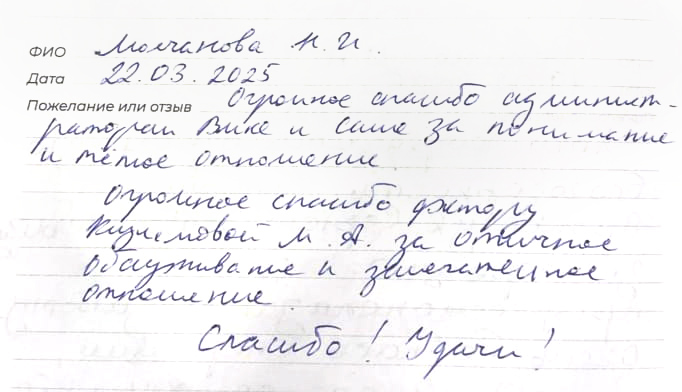 ФИО Молчанова Н. И.
Дата 22.03.2025
Пожелание или отзыв Огромное спасибо админист-
раторам Вике и Саше за понимание
и тёплое отношение.
Огромное спасибо доктору
М. А. за отличное
обслуживание и замечательное
отношение.
Спасибо! Удачи!